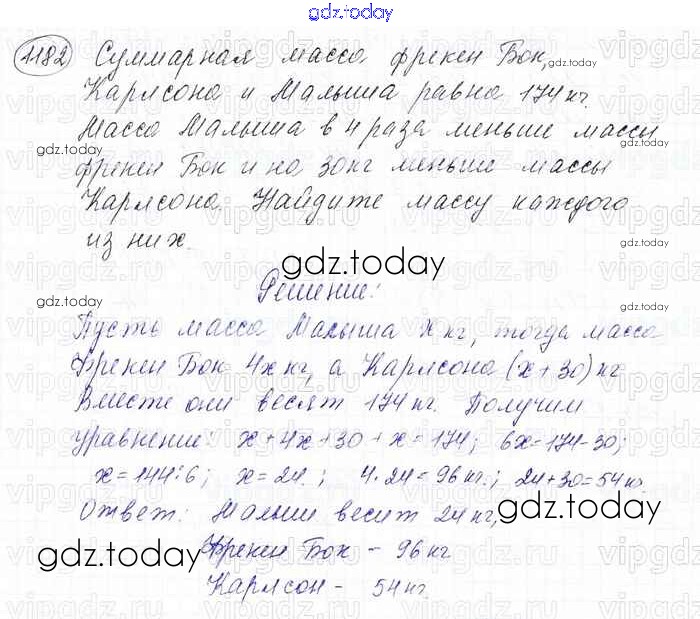 gdz.today
1182 Суммарная масса фрекен Бок,
gdz.today
Карлсона и Малыша равна 174 кг.
Масса Малыша в 4 раза меньше массы
gdz.today
gdz.today
фрекен Бок и на 30 кг меньше массы
Карлсона. Найдите массу каждого
из них.
gdz.today
Решение:
gdz.today
gdz.today
Пусть масса Малыша x кг, тогда масса
Фрекен Бок 4x кг, а Карлсона (x+30) кг
Вместе они весят 174 кг. Получим
уравнение: x+4x+30+x=174; 6x=174-30;
x=144:6; x=24; 4·24=96 кг.; 24+30=54 кг.
Ответ: Малыш весит 24 кг,
gdz.today
gdz.today
Фрекен Бок - 96 кг
Карлсон - 54 кг.
gdz.today